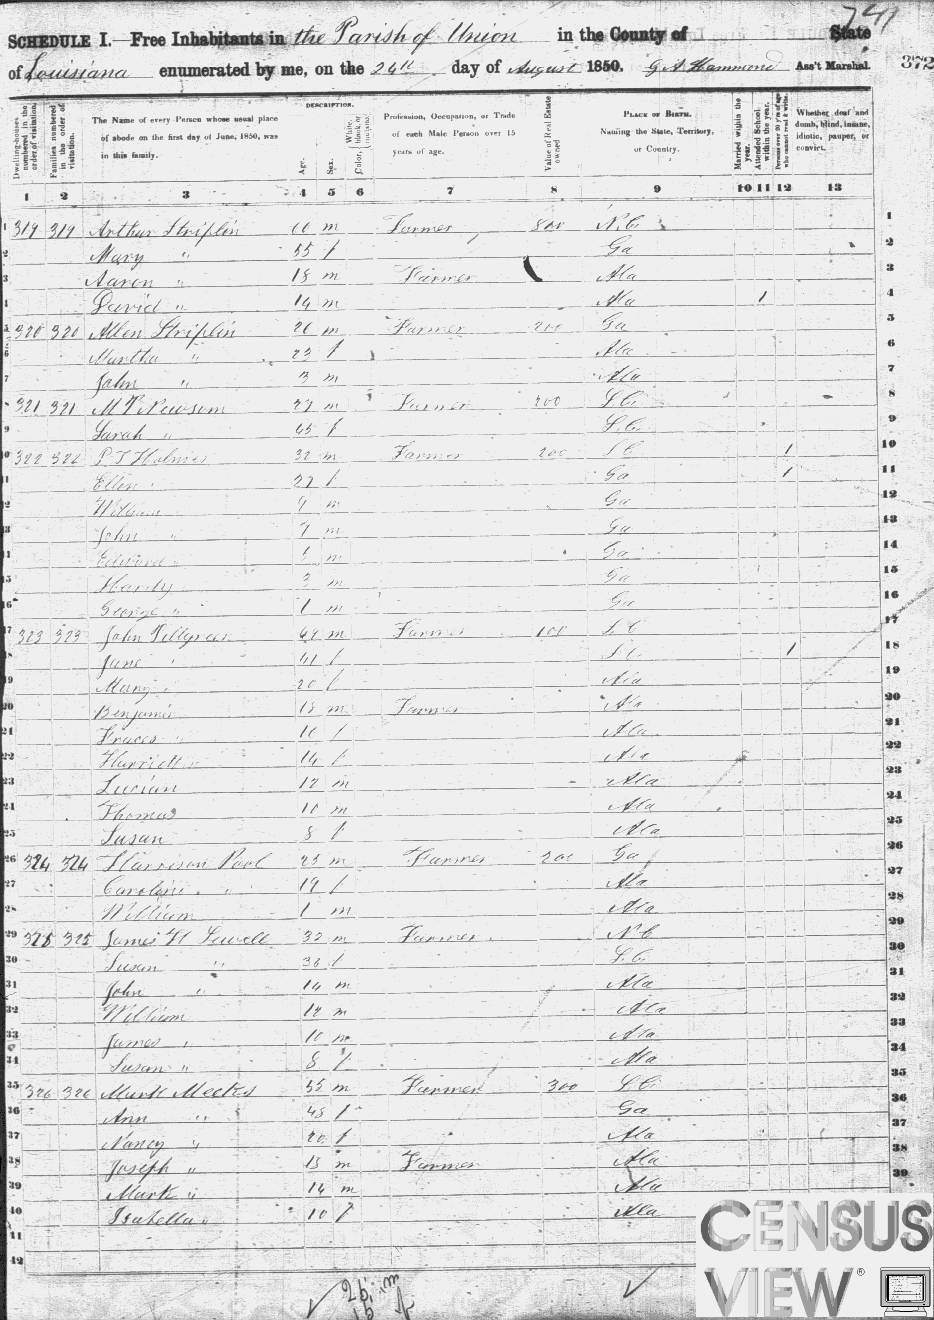 741
SCHEDULE I.—Free Inhabitants in the Parish of Union in the County of State
of Louisiana enumerated by me, on the 24th day of August 1850. G A Hammond Ass't Marshal. 372
Dwelling-houses numbered in the order of visitation.
Families numbered in the order of visitation.
The Name of every Person whose usual place of abode on the first day of June, 1850, was in this family.
DESCRIPTION.
Age.
Sex.
Color, White, black, or mulatto.
Profession, Occupation, or Trade of each Male Person over 15 years of age.
Value of Real Estate owned
PLACE OF BIRTH. Naming the State, Territory, or Country.
Married within the year.
Attended School within the year.
Persons over 20 y'rs of age who cannot read & write.
Whether deaf and dumb, blind, insane, idiotic, pauper, or convict.
1 2 3 4 5 6 7 8 9 10 11 12 13
1 319 319 Arthur Striplin m Farmer 800 N.C. 1
2 Mary " 55 f Ga 2
3 Aaron " 18 m Farmer Ala 3
4 David " 14 m Ala / 4
5 320 320 Allen Striplin 26 m Farmer 200 Ga 5
6 Martha " 23 f Ala 6
7 John " 3 m Ala 7
8 321 321 M Newsom 27 m Farmer 200 S.C. 8
9 Sarah " 45 f S.C. 9
10 322 322 Holmes 32 m Farmer 200 S C / 10
11 Ellen " 27 f Ga / 11
12 9 m Ga 12
13 John " 7 m Ga 13
14 Edward m Ga 14
15 Hardy 3 m Ga 15
16 George " 1 m Ga 16
17 323 323 John m Farmer 100 S.C. 17
18 Jane " 41 f S C / 18
19 Mary " 20 f Ala 19
20 Benjamin 18 m Farmer Ala 20
21 16 f Ala 21
22 Harriett 14 f Ala 22
23 Lucian 12 m Ala 23
24 Thomas 10 m Ala 24
25 Susan 8 f Ala 25
26 324 324 Harrison Pool 23 m Farmer 200 Ga 26
27 Caroline " 19 f Ala 27
28 William 1 m Ala 28
29 325 325 James H Sewell 33 m Farmer N.C 29
30 Susan " 36 f S.C. 30
31 John " 14 m Ala 31
32 William 12 m Ala 32
33 James " 10 m Ala 33
34 Susan " 8 f Ala 34
35 326 326 Mark Meeks 55 m Farmer 300 S C 35
36 Ann " 48 f Ga 36
37 Nancy " 20 f Ala 37
38 Joseph " 18 m Farmer Ala 38
39 Mark " 14 m Ala 39
40 Isabella " 10 f Ala
41
42
CENSUS
VIEW®